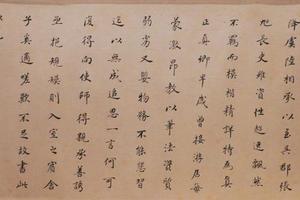 淳虞陸相承以至吳郡張
旭長史雖資性超逸飄然
不羈而模楷精詳特為真
正真卿早歲曾接游居每
蒙激昂教以筆法資質
弱劣又嬰物務不能懇習
迄以無成追思一言何可
復得向使師得親承善誘
亟挹規模則入室之賓舍
子奚適嗟歎不足故書此